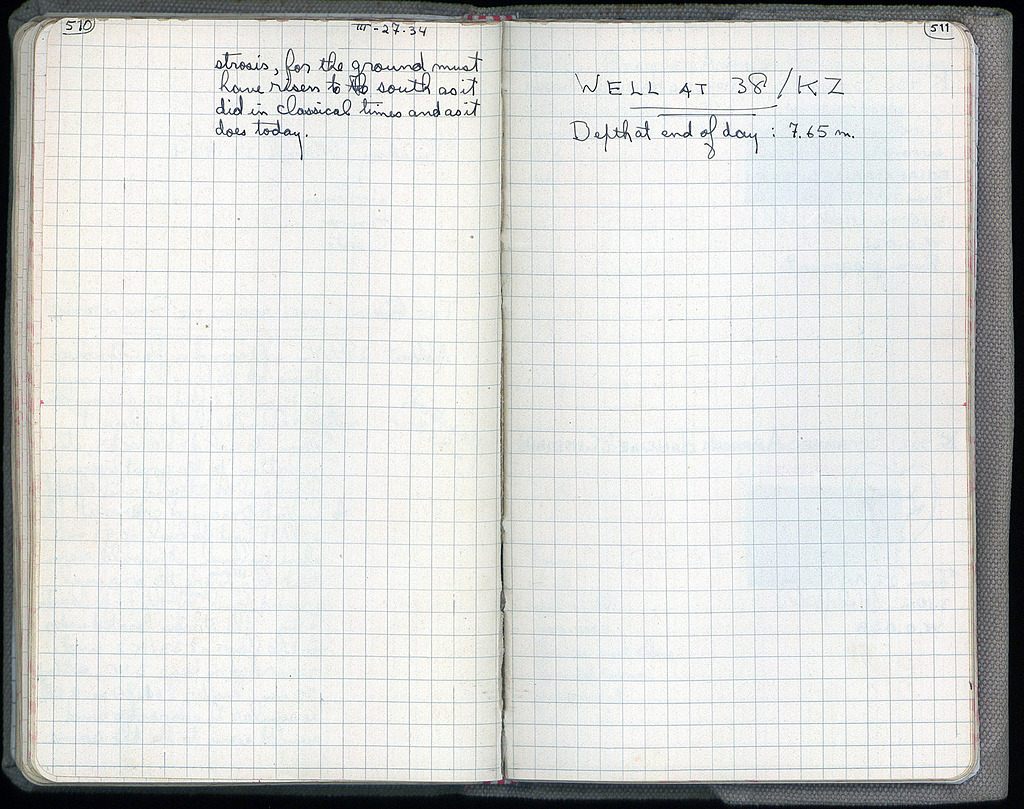 510
III-27-34
strosis, for the ground must
have risen to the south as it
did in classical times and as it
does today.
511
WELL AT 38/KZ
Depth at end of day : 7.65 m.